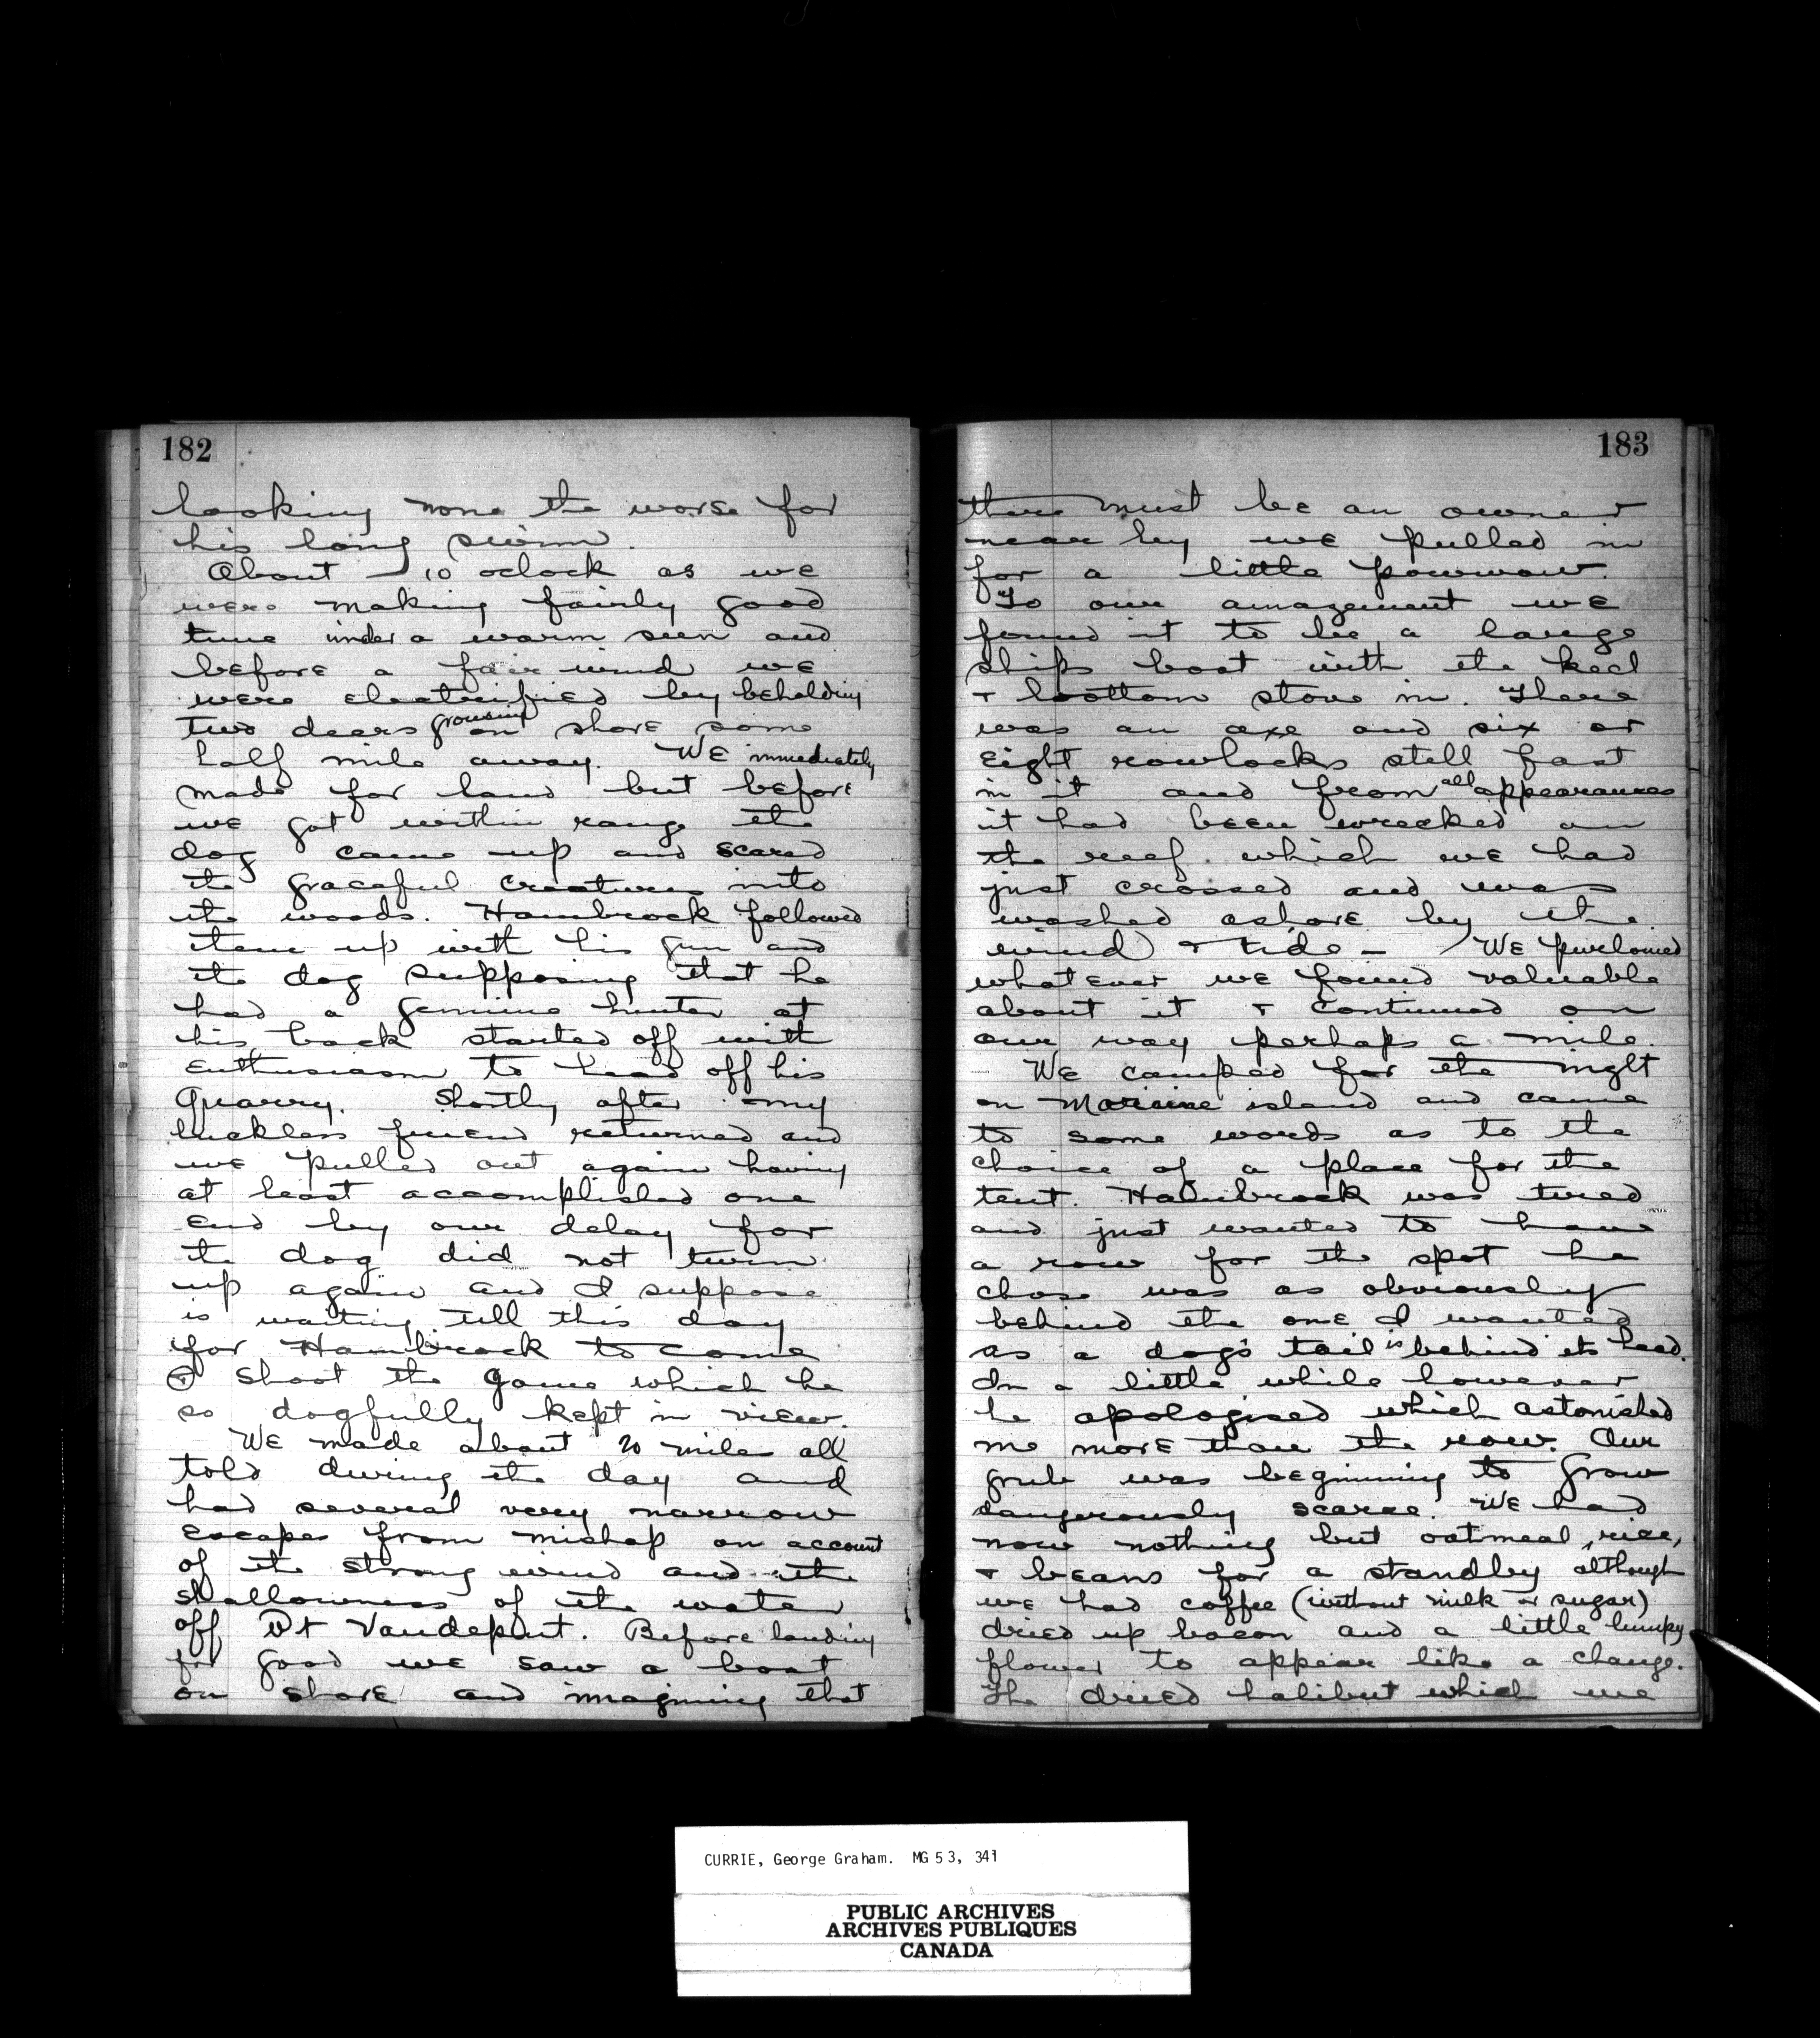 182
looking none the worse for
his long swim.
About 10 oclock as we
were making fairly good
time under a warm sun and
before a fair wind we
were electrified by beholding
two deers grousing on shore some
half mile away. We immediately
made for land but before
we got within range the
dog came up and scared
the graceful creatures into
the woods. Hambrock followed
them up with his gun and
the dog supposing that he
had a genuine hunter at
his back started off with
enthusiasm to head off his
quarry. Shortly after my
luckless friend returned and
we pulled out again having
at least accomplished one
end by our delay for
the dog did not turn
up again and I suppose
is waiting till this day
for Hambrock to come
+ shoot the game which he
so dogfully kept in view.
We made about 20 miles all
told during the day and
had several very narrow
escapes from mishap on account
of the strong wind and the
shallowness of the water
off Pt Vandeput. Before landing
for good we saw a boat
on shore and imagining that
183
there must be an owner
near by we pulled in
for a little powwow.
To our amazement we
found it to be a large
ships boat with the keel
+ bottom stove in. There
was an axe and six or
eight rowlocks still fast
in it and from all appearances
it had been wrecked on
the reef which we had
just crossed and was
washed ashore by the
wind + tide - We purloined
whatever we found valuable
about it + continued on
our way perhaps a mile.
We camped for the night
on island and came
to some words as to the
choice of a place for the
tent. Hambrock was tired
and just wanted to have
a row for the spot he
chose was as obviously
behind the one I wanted
as a dog's tail is behind its head.
In a little while however
he apologised which astonished
me more than the row. Our
grub was beginning to grow
dangerously scarce. We had
now nothing but oatmeal, rice,
+ beans for a standby although
we had coffee (without milk or sugar)
dried up bacon and a little lumpy
flower to appear like a change.
The dried halibut which we
CURRIE, George Graham. MG 53, 341
PUBLIC ARCHIVES
ARCHIVES PUBLIQUES
CANADA